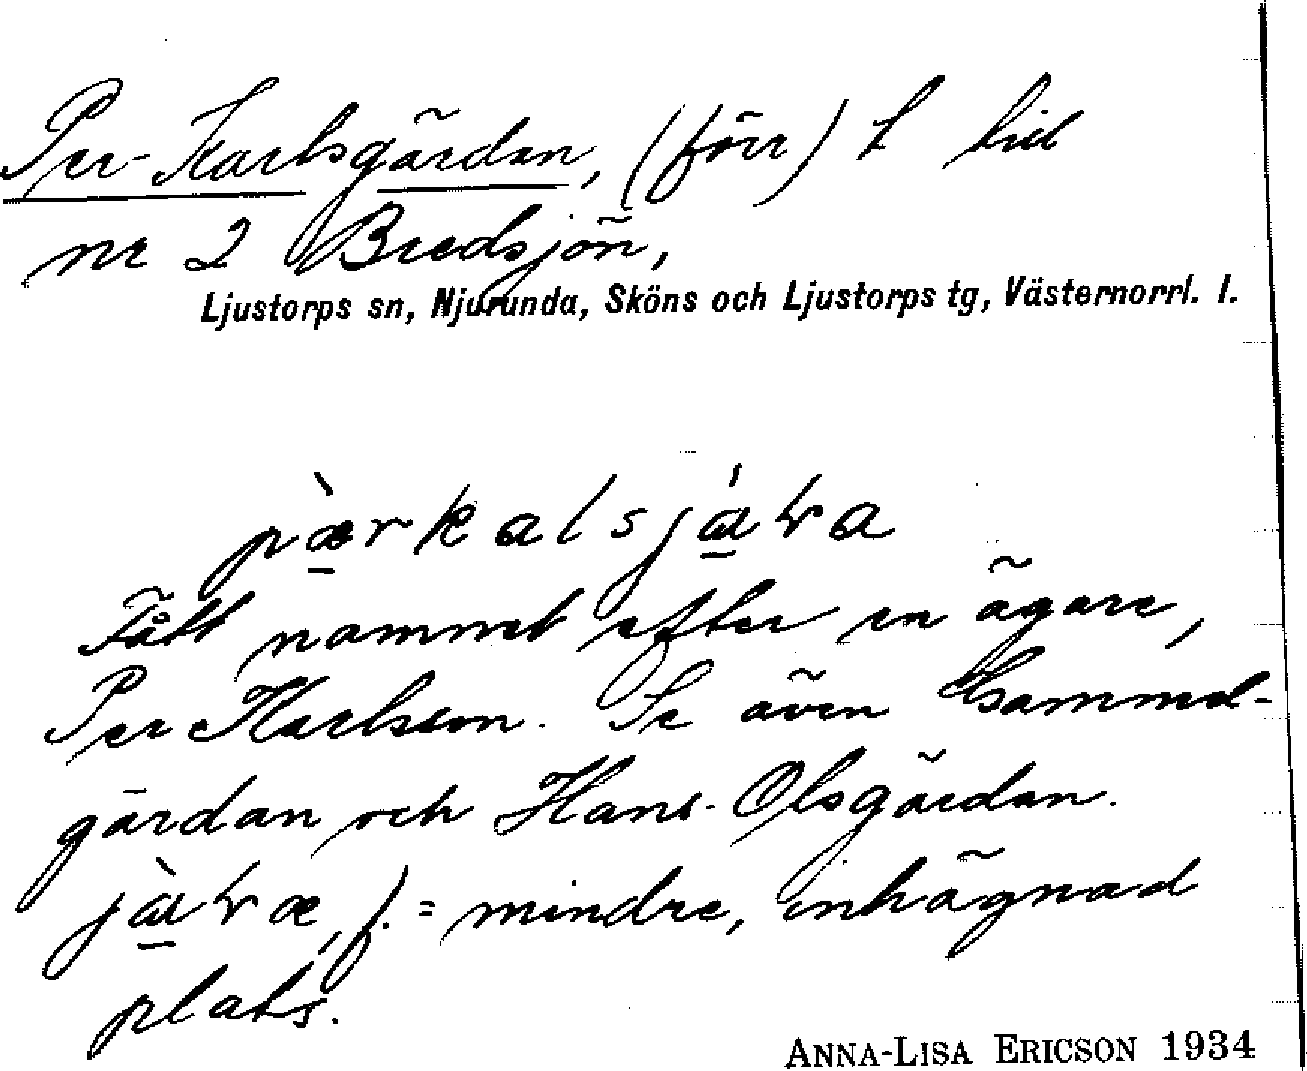 Per-Karlsgärdan, (förr) t hid
nr 2 Bredsjön,
Ljustorps sn, Njurunda, Sköns och Ljustorps tg, Västernorrl. l.
Fått namnet efter en ägare,
Per Karlsson. Se även Gammel-
gärdan och Hans-Olsgärdan.
f. = mindre, inhägnad
plats.
ANNA-LISA ERICSON 1934